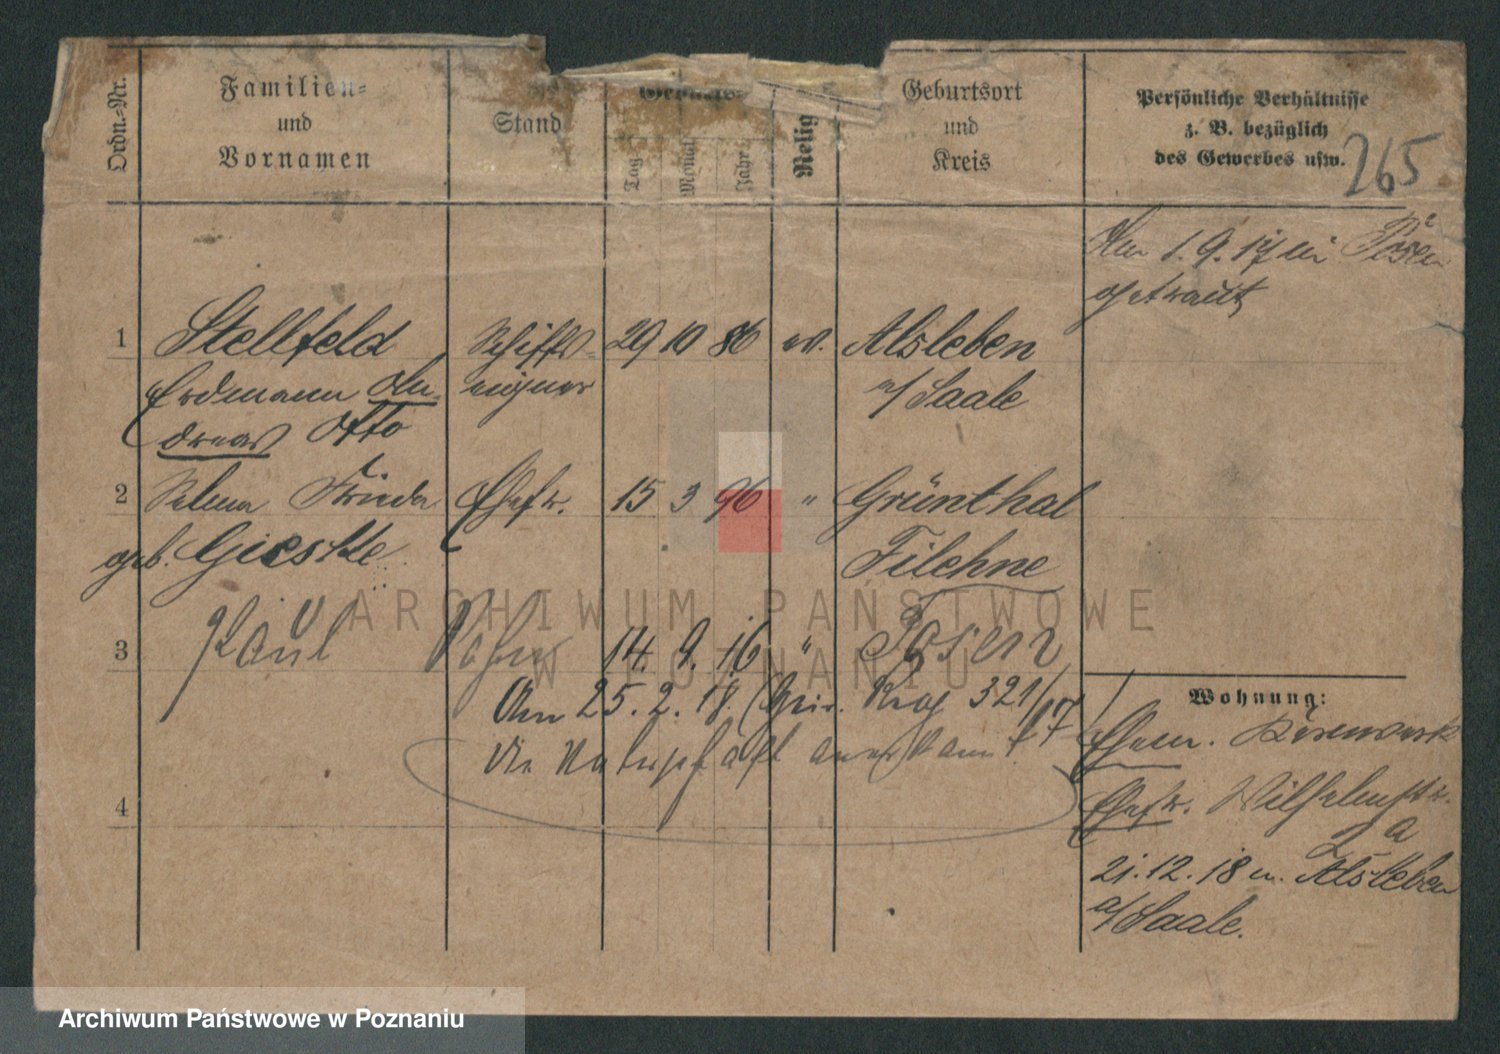 Ordn.-Nr.
Familien-
und
Vornamen
Stand
Geburts-
Tag
Monat
Jahr
Relig
Geburtsort
und
Kreis
Persönliche Verhältnisse
z. B. bezüglich
des Gewerbes usw.
265
Am 1.9.17 in Posen
getraut
1 Stellfeld Schiffs- 29 10 86 ev. Alsleben
Erdmann An- eigner a/Saale
dreas Otto
2 Selma Frieda Ehefr. 15 3 96 " Grünthal
geb. Gieske Filehne
3 Paul Sohn 14. 9. 16 " Posen
Am 25.2.18. Reg 321/17
die Vaterschaft anerkannt.
4
Wohnung:
Ehem.
Ehefr. Wilhelmstr.
2 a
21.12.18 n. Alsleben
a/Saale.
ARCHIWUM PAŃSTWOWE
W POZNANIU
Archiwum Państwowe w Poznaniu